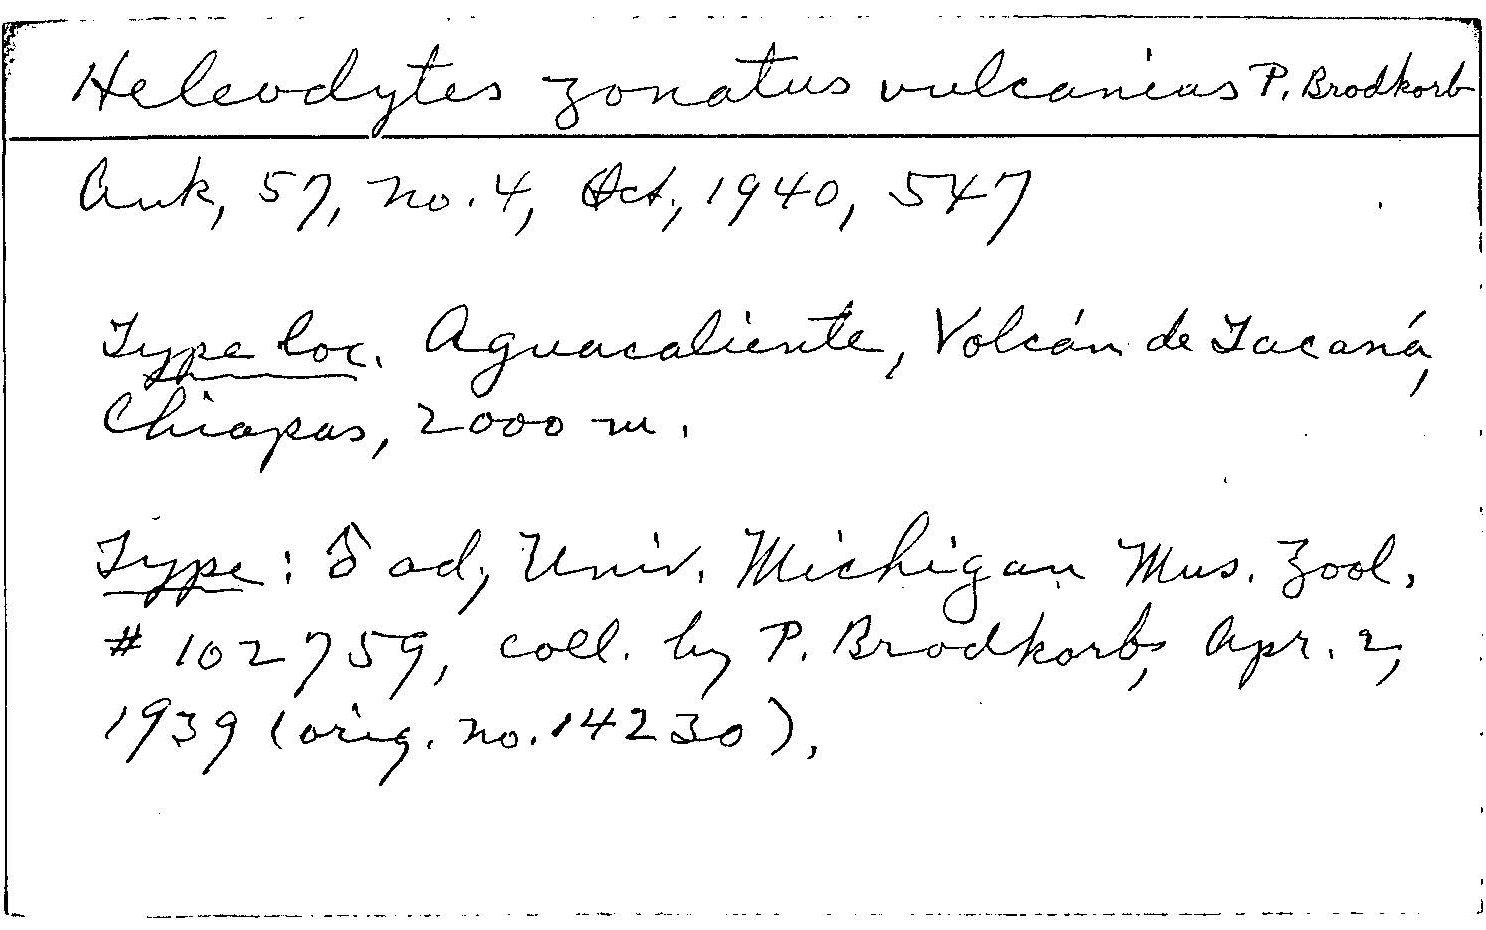 Heleodytes zonatus vulcanius P. Brodkorb
Auk, 57, no. 4, Oct., 1940, 547
Type loc. Aguacaliente, Volcán de Tacaná,
Chiapas, 2000 m.
Type: ♂ ad., Univ. Michigan Mus. Zool.
# 102759, coll. by P. Brodkorb, Apr. 2,
1939 (orig. no. 14230).